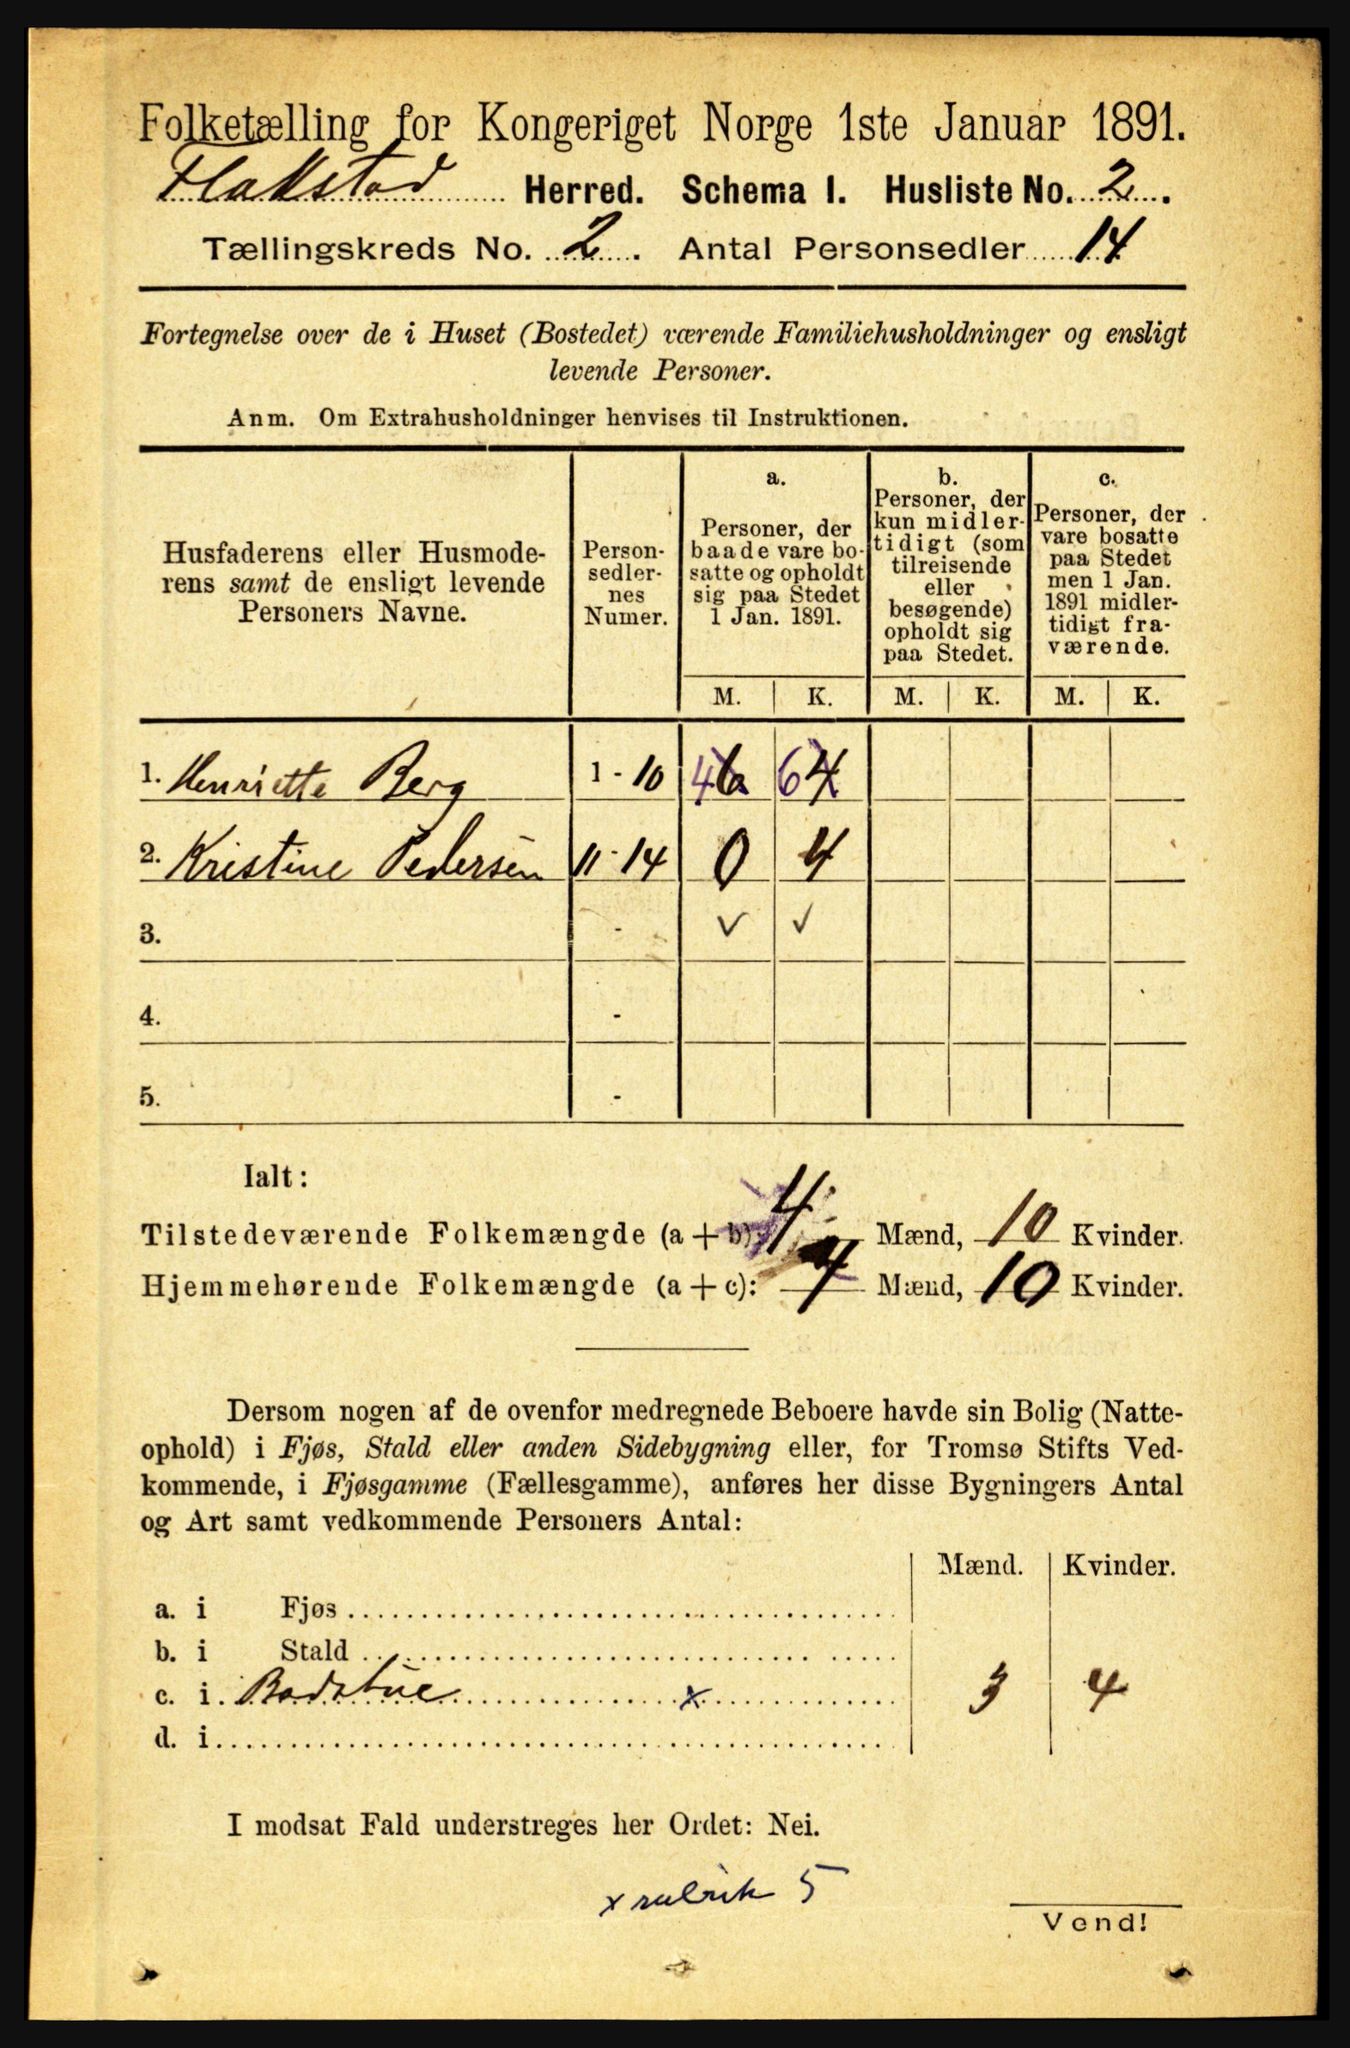 Folketælling for Kongeriget Norge 1ste Januar 1891.
Flakstad Herred. Schema I. Husliste No. 2.
Tællingskreds No. 2. Antal Personsedler 14
Fortegnelse over de i Huset (Bostedet) værende Familiehusholdninger og ensligt
levende Personer.
Anm. Om Extrahusholdninger henvises til Instruktionen.
Husfaderens eller Husmode-
rens samt de ensligt levende
Personers Navne.
Person-
sedler-
nes
Numer.
a.
Personer, der
baade vare bo-
satte og opholdt
sig paa Stedet
1 Jan. 1891.
b.
Personer, der
kun midler-
tidigt (som
tilreisende
eller
besøgende)
opholdt sig
paa Stedet.
c.
Personer, der
vare bosatte
paa Stedet
men 1 Jan.
1891 midler-
tidigt fra-
værende.
M. K. M. K. M. K.
1. Henriette Berg 1 - 10 4 6 6 4
2. Kristine Pedersen 11 - 14 0 4
3. - ✓ ✓
4. -
5. -
Ialt:
Tilstedeværende Folkemængde (a + b): 4 Mænd, 10 Kvinder.
Hjemmehørende Folkemængde (a + c): 4 Mænd, 10 Kvinder.
Dersom nogen af de ovenfor medregnede Beboere havde sin Bolig (Natte-
ophold) i Fjøs, Stald eller anden Sidebygning eller, for Tromsø Stifts Ved-
kommende, i Fjøsgamme (Fællesgamme), anføres her disse Bygningers Antal
og Art samt vedkommende Personers Antal:
Mænd. Kvinder.
a. i Fjøs
b. i Stald
c. i Badstue x 3 4
d. i
I modsat Fald understreges her Ordet: Nei.
x rubrik 5
Vend!